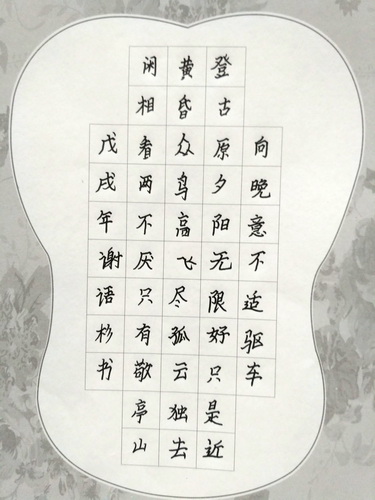 向晚意不适驱车
登古原夕阳无限好只是近
黄昏众鸟高飞尽孤云独去
闲相看两不厌只有敬亭山
戊戌年谢语杉书